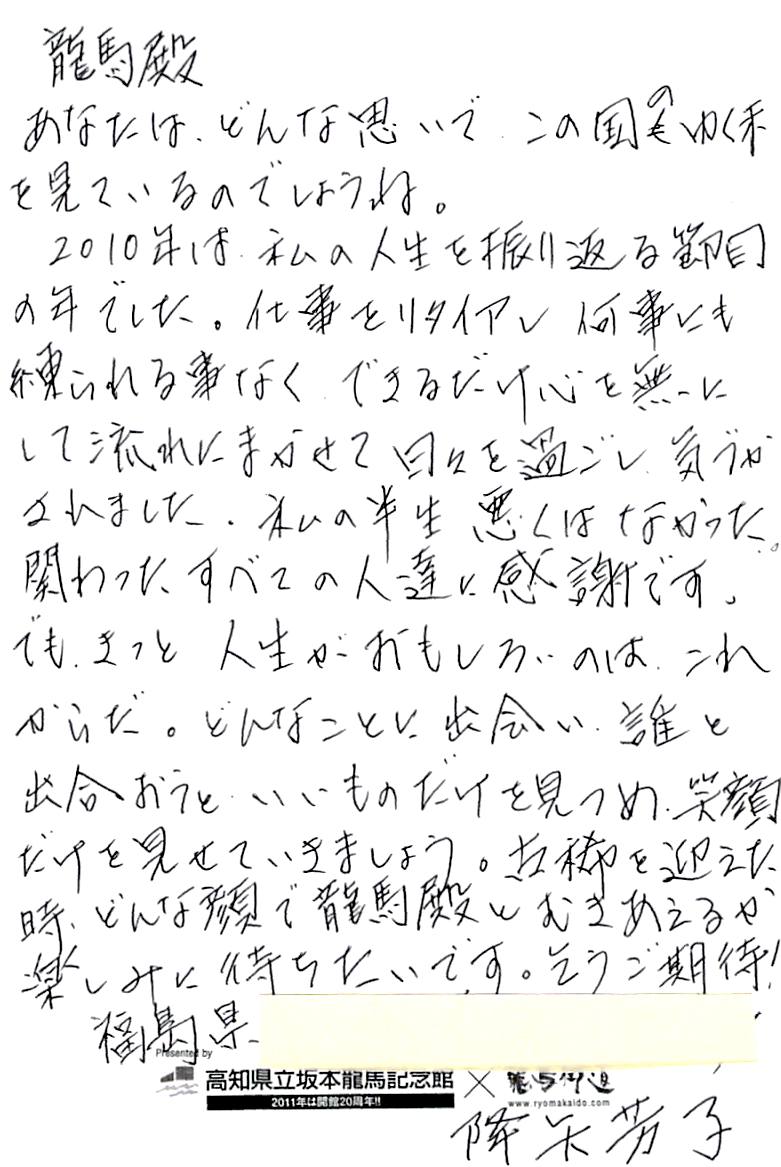 龍馬殿
あなたは、どんな思いで、この国のゆく末
を見ているのでしょうね。
2010年は、私の人生を振り返る節目
の年でした。仕事をリタイアし 何事にも
練られる事なく、できるだけ心を無に
して流れにまかせて日々を過ごし、気づか
されました。私の半生 悪くはなかった。
関わった、すべての人達に感謝です。
でも、きっと 人生がおもしろいのは、これ
からだ。どんなことに出会い、誰と
出合おうと、いいものだけを見つめ、笑顔
だけを見せていきましょう。古稀を迎えた
時、どんな顔で龍馬殿とむきあえるか
楽しみに待ちたいです。乞うご期待!
福島県
Presented by
高知県立坂本龍馬記念館 × 龍馬街道
2011年は開館20周年!!
www.ryomakaido.com
降矢芳子